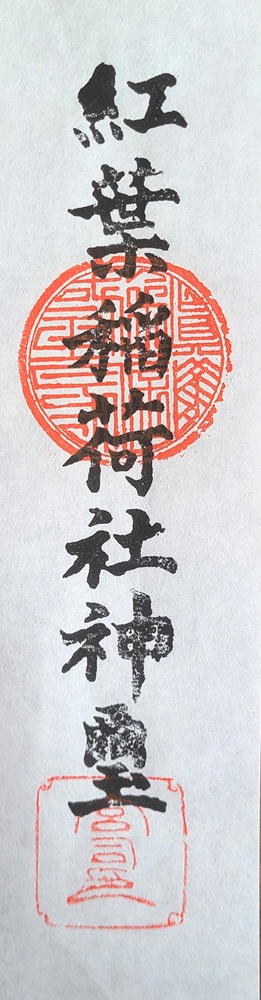 紅葉稲荷社神璽